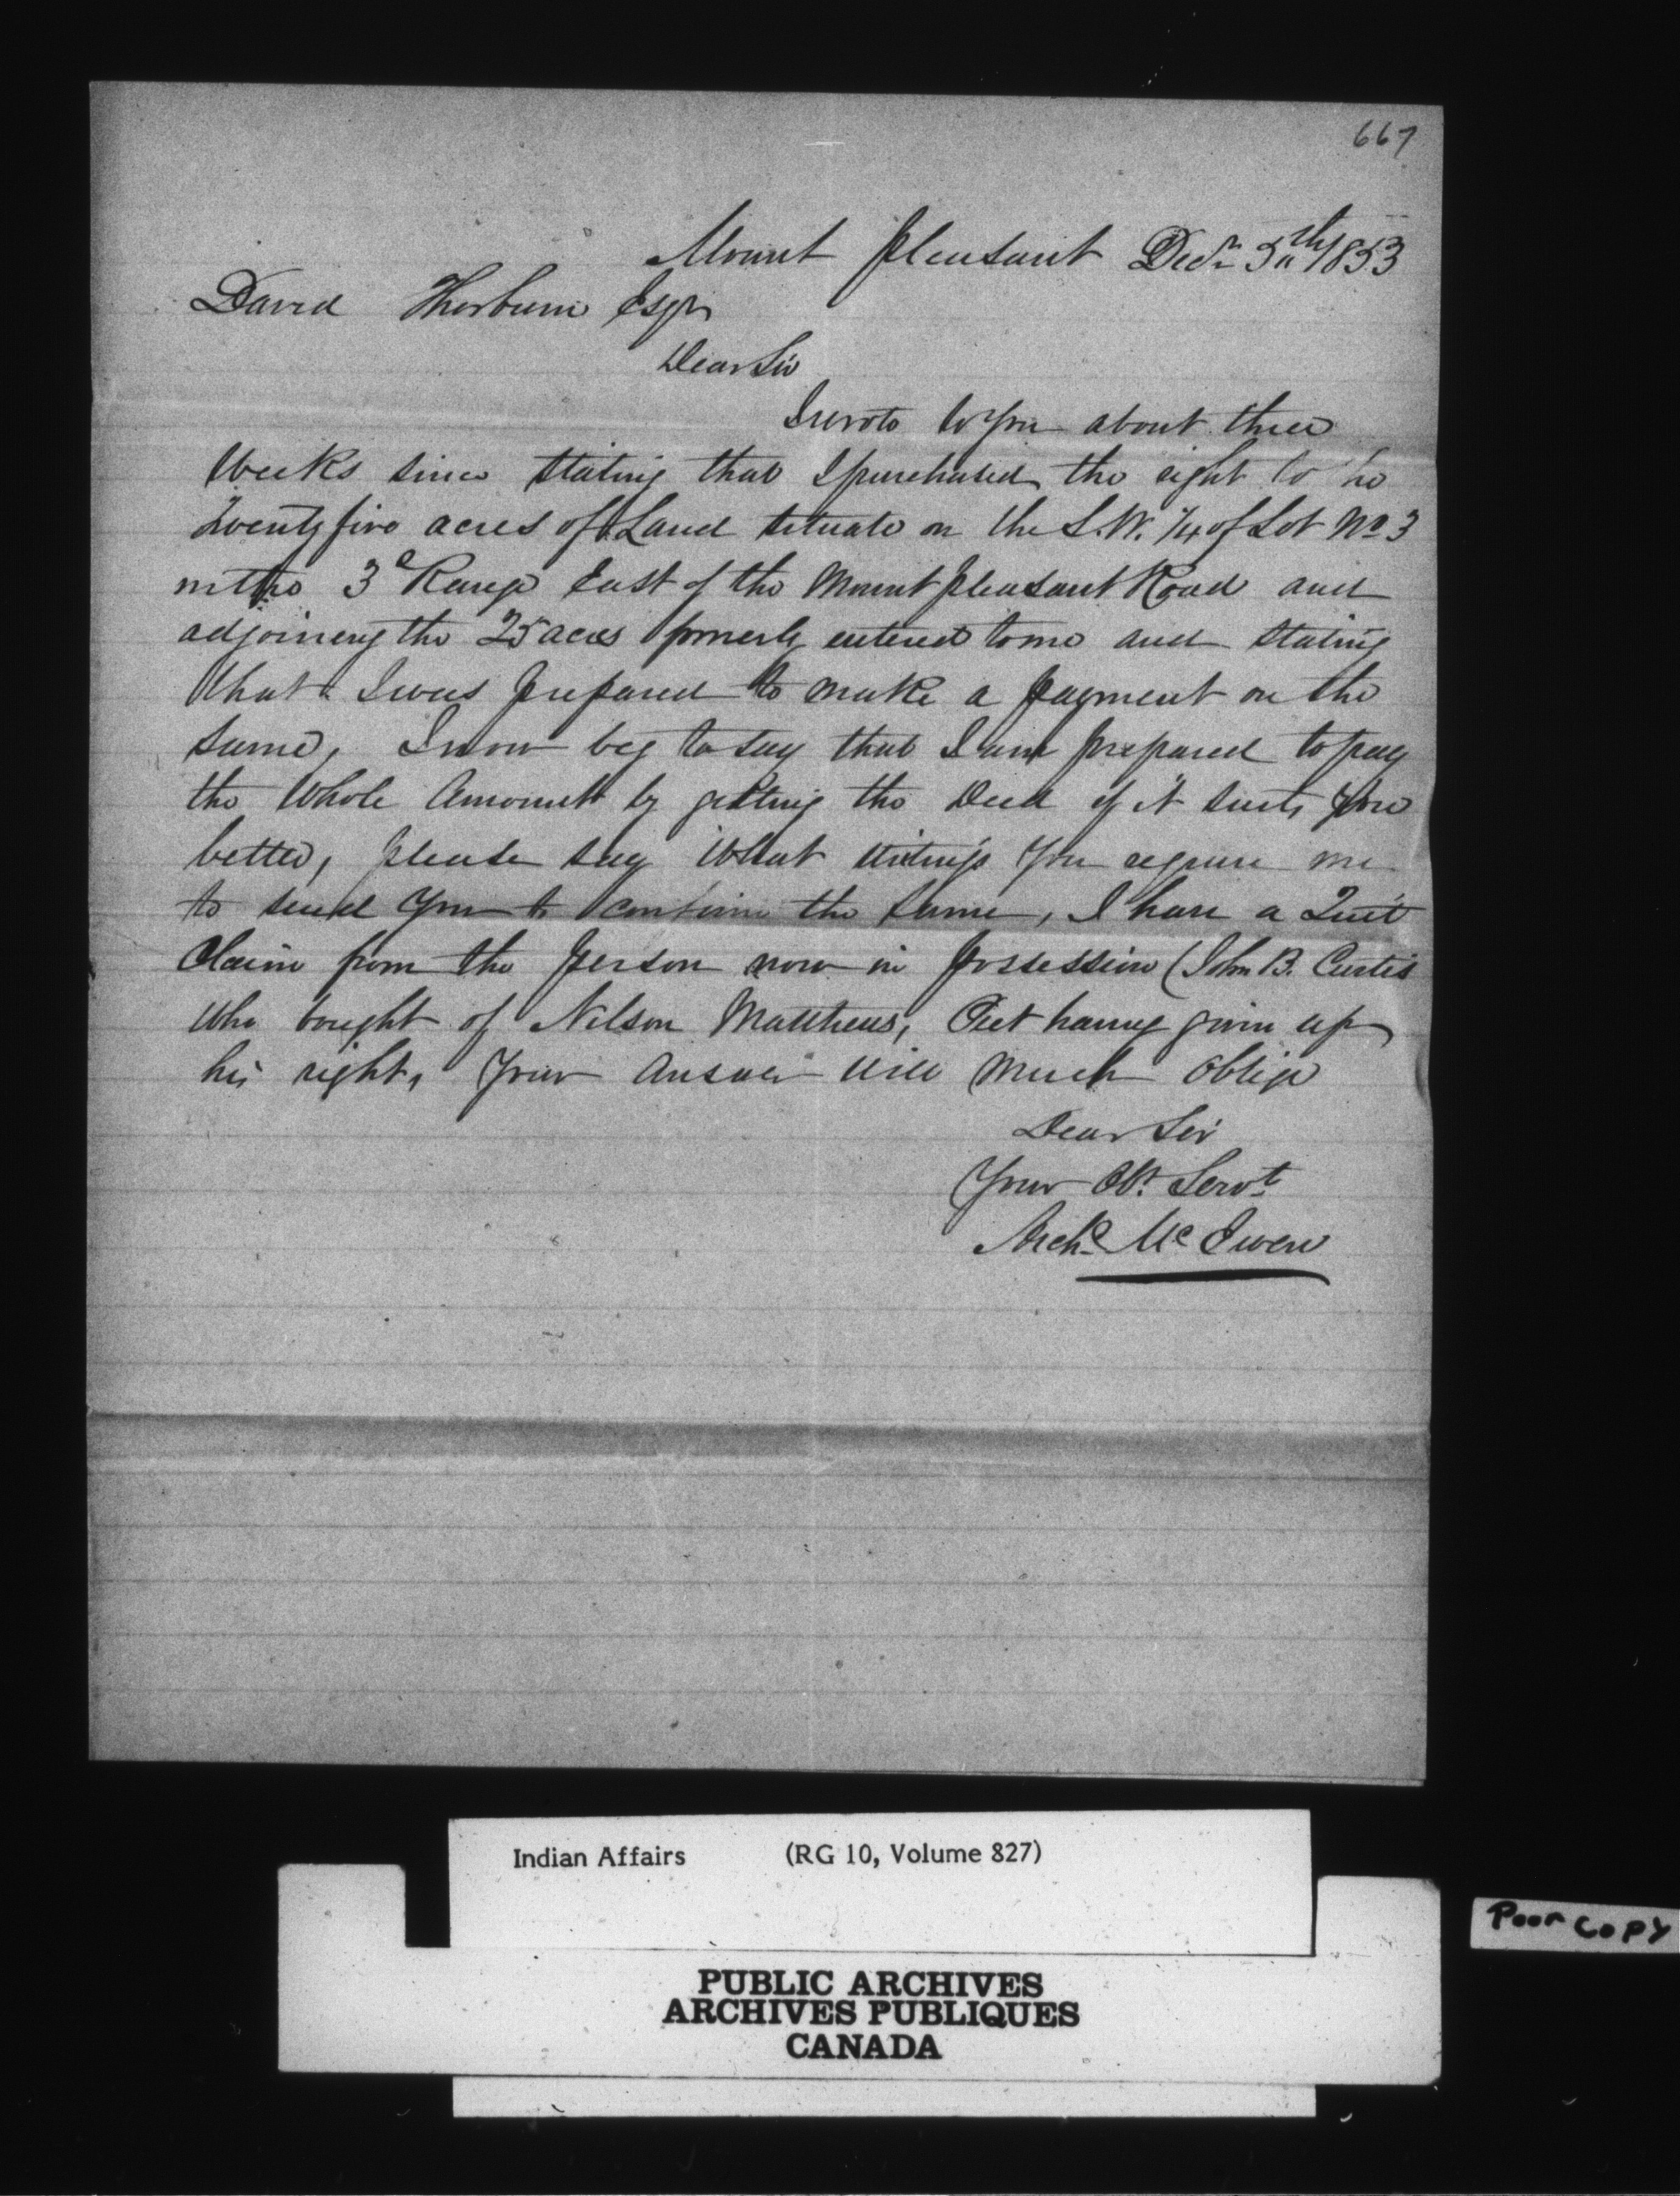 667
Mount Pleasant Decr 5th 1853
David Thorburn Esqr
Dear Sir
I wrote to you about three
Weeks since stating that I purchased the right to the
Twenty five acres of Land situate on the S.W. 1/4 of Lot No 3
in the 3d Range East of the Mount Pleasant Road and
adjoining the 25 acres formerly entered to me and stating
that I was prepared to make a payment on the
same, I now beg to say that I am prepared to pay
the Whole Amount by getting the Deed if it suits you
better, please say What writings you require me
to send you to confirm the same, I have a Quit
Claim from the Person now in Possession (John B. Curtis
Who bought of Nelson Matthews, having given up
his right, Your Answer will much oblige
Dear Sir
Your Obt. Servt
Archd McEwen
Indian Affairs (RG 10, Volume 827)
Poor Copy
PUBLIC ARCHIVES
ARCHIVES PUBLIQUES
CANADA